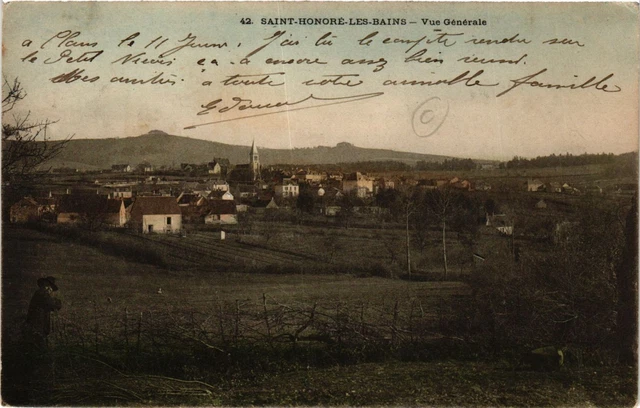 42. SAINT-HONORÉ-LES-BAINS – Vue Générale
à Plans le 11 J'ai lû le compte rendu sur
le Petit ça a encore assez bien
Mes amitiés à toute votre aimable famille
©